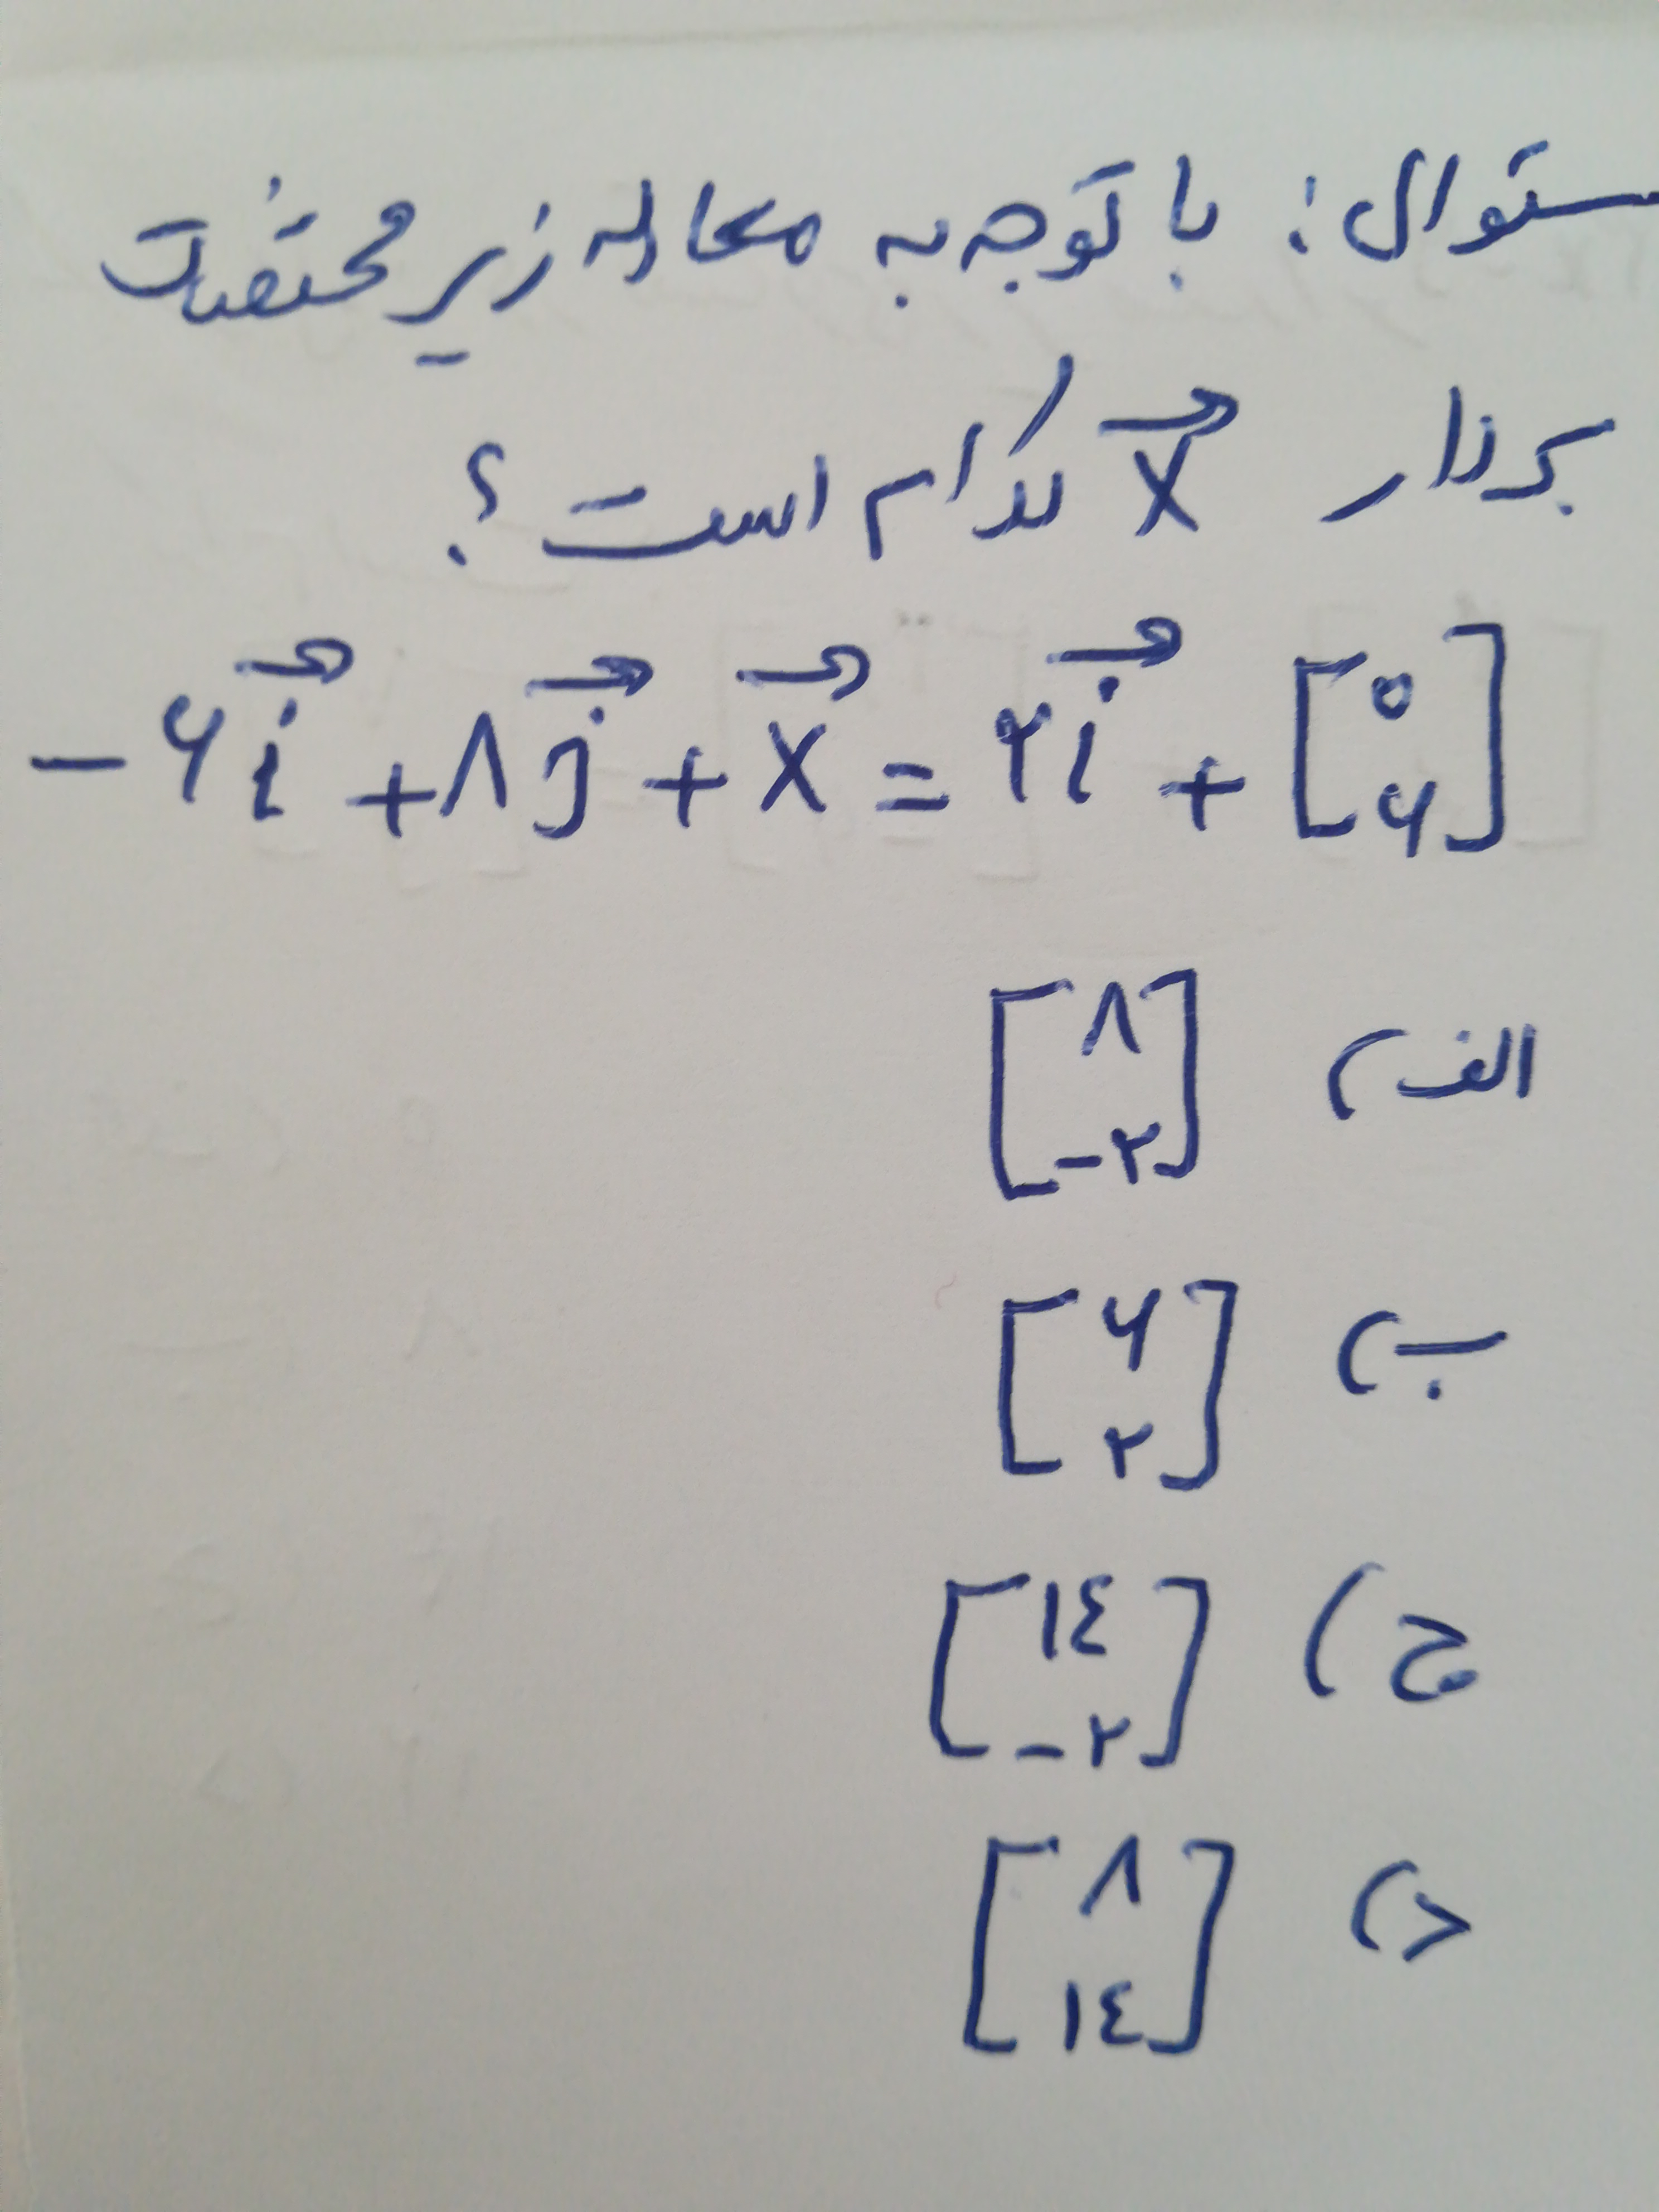 سئوال: با توجه به معادله زیر مختصات
بردار X⃗ کدام است؟
-۶i⃗ + ۸j⃗ + X⃗ = ۲i⃗ + [۰ ۶]
الف) [۸ -۲]
ب) [۶ ۲]
ج) [۱٤ -۲]
د) [۸ ۱٤]